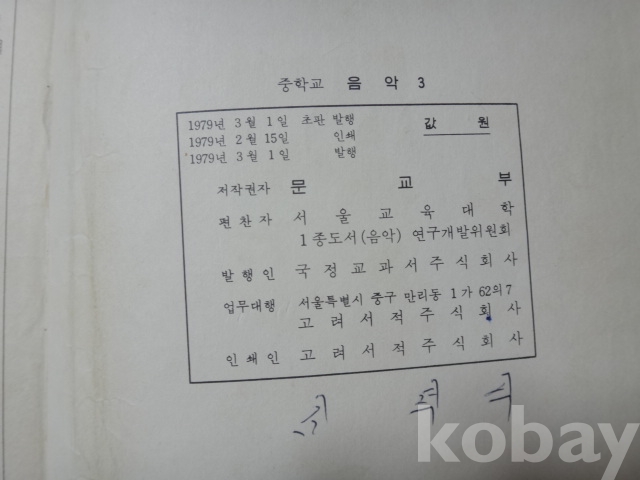 중학교 음 악 3
1979년 3월 1일 초판 발행
1979년 2월 15일 인쇄
1979년 3월 1일 발행
값 원
저작권자 문 교 부
편찬자 서 울 교 육 대 학
1종도서(음악) 연구개발위원회
발행인 국정교과서주식회사
업무대행 서울특별시 중구 만리동 1가 62의 7
고려서적주식회사
인쇄인 고려서적주식회사
kobay